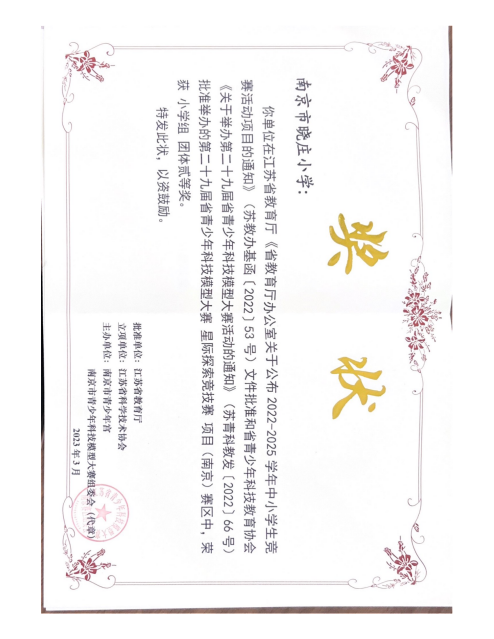 奖状
南京市晓庄小学：
你单位在江苏省教育厅《省教育厅办公室关于公布 2022-2025 学年中小学生竞
赛活动项目的通知》（苏教办基函〔2022〕53 号）文件批准和省青少年科技教育协会
《关于举办第二十九届省青少年科技模型大赛活动的通知》（苏青科教发〔2022〕66 号）
批准举办的第二十九届省青少年科技模型大赛 星际探索竞技赛 项目（南京）赛区中，荣
获 小学组 团体贰等奖。
特发此状，以资鼓励。
批准单位：江苏省教育厅
立项单位：江苏省科学技术协会
主办单位：南京市青少年宫
南京市青少年科技模型大赛组委会（代章）
2023 年 3 月